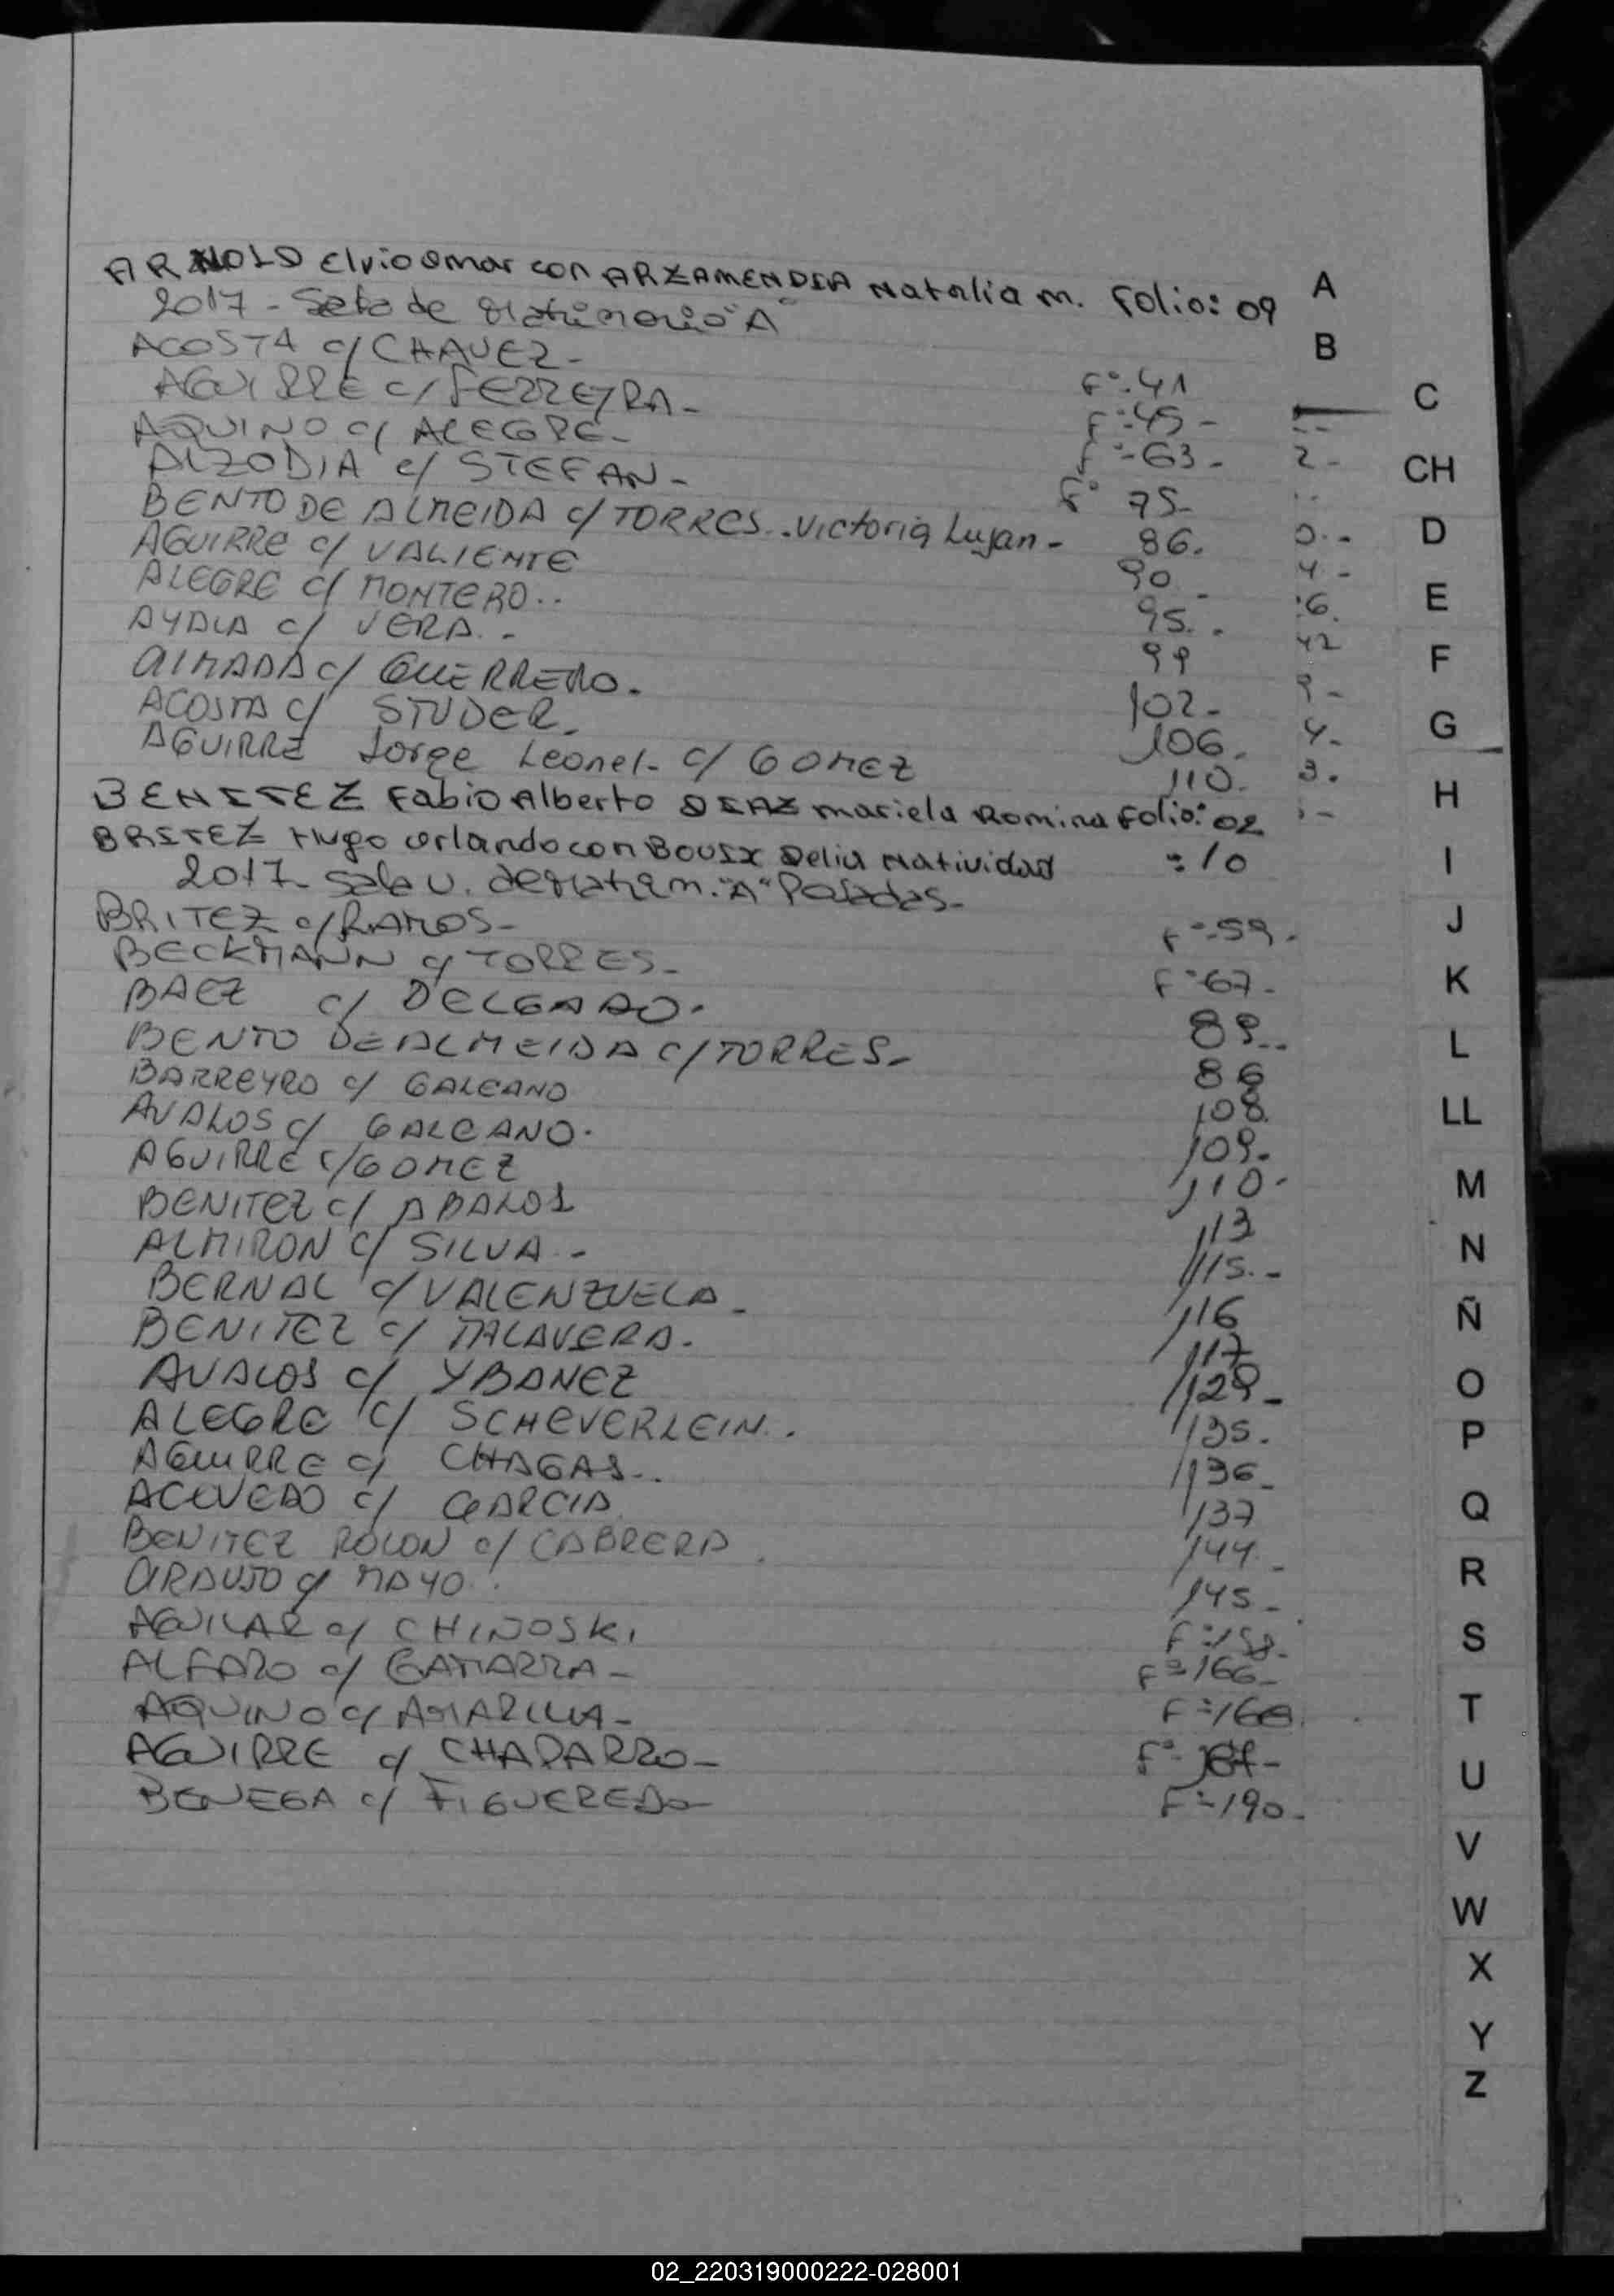 ARNOLD Elvio Omar con ARZAMENDIA Natalia M. Folio: 09
2017 - de "A"
ACOSTA c/ CHAVEZ - Fº. 41
AGUIRRE c/ FERREYRA - Fº. 45 -
AQUINO c/ ALEGRE - Fº - 63 -
c/ STEFAN - Fº 75 -
BENTO DE ALMEIDA c/ TORRES.. Victoria Lujan - 86.
AGUIRRE c/ VALIENTE 90
ALEGRE c/ MONTERO.. 95. .
AYALA c/ VERA. - 99
ALMADA c/ GUERRERO. 102 -
ACOSTA c/ STUDER. 106.
AGUIRRE Jorge Leonel - c/ GOMEZ 110.
BENITEZ Fabio Alberto DIAZ Mariela Romina Folio: 02
BRITEZ Hugo Orlando con BOUIX Delia Natividad : 10
2017 - "A" Posadas -
BRITEZ c/ RAMOS - Fº - 59 -
BECKMANN c/ TORRES - Fº - 67 -
BAEZ c/ DELGADO.
BENTO DE ALMEIDA c/ TORRES - 86
BARREYRO c/ GALEANO 108.
AVALOS c/ GALEANO. 109.
AGUIRRE c/ GOMEZ 110.
BENITEZ c/ ABALOS 113
ALMIRON c/ SILVA. - 115. -
BERNAL c/ VALENZUELA - 116
BENITEZ c/ TALAVERA. 117
AVALOS c/ YBANEZ 129 -
ALEGRE c/ SCHEVERLEIN.. 135.
AGUIRRE c/ CHAGAS.. 136 -
ACEVEDO c/ GARCIA 137
BENITEZ ROLON c/ CABRERA. 144 -
ARAUJO c/ MAYO. 145 -
AGUILAR c/ CHINOSKI Fº 158 -
ALFARO c/ GAMARRA - Fº 166 -
AQUINO c/ AMARILLA - Fº 168.
AGUIRRE c/ CHAPARRO - Fº -
BENEGA c/ FIGUEREDO - Fº - 190 -
A
B
C
CH
D
E
F
G
H
I
J
K
L
LL
M
N
Ñ
O
P
Q
R
S
T
U
V
W
X
Y
Z
02_220319000222-028001